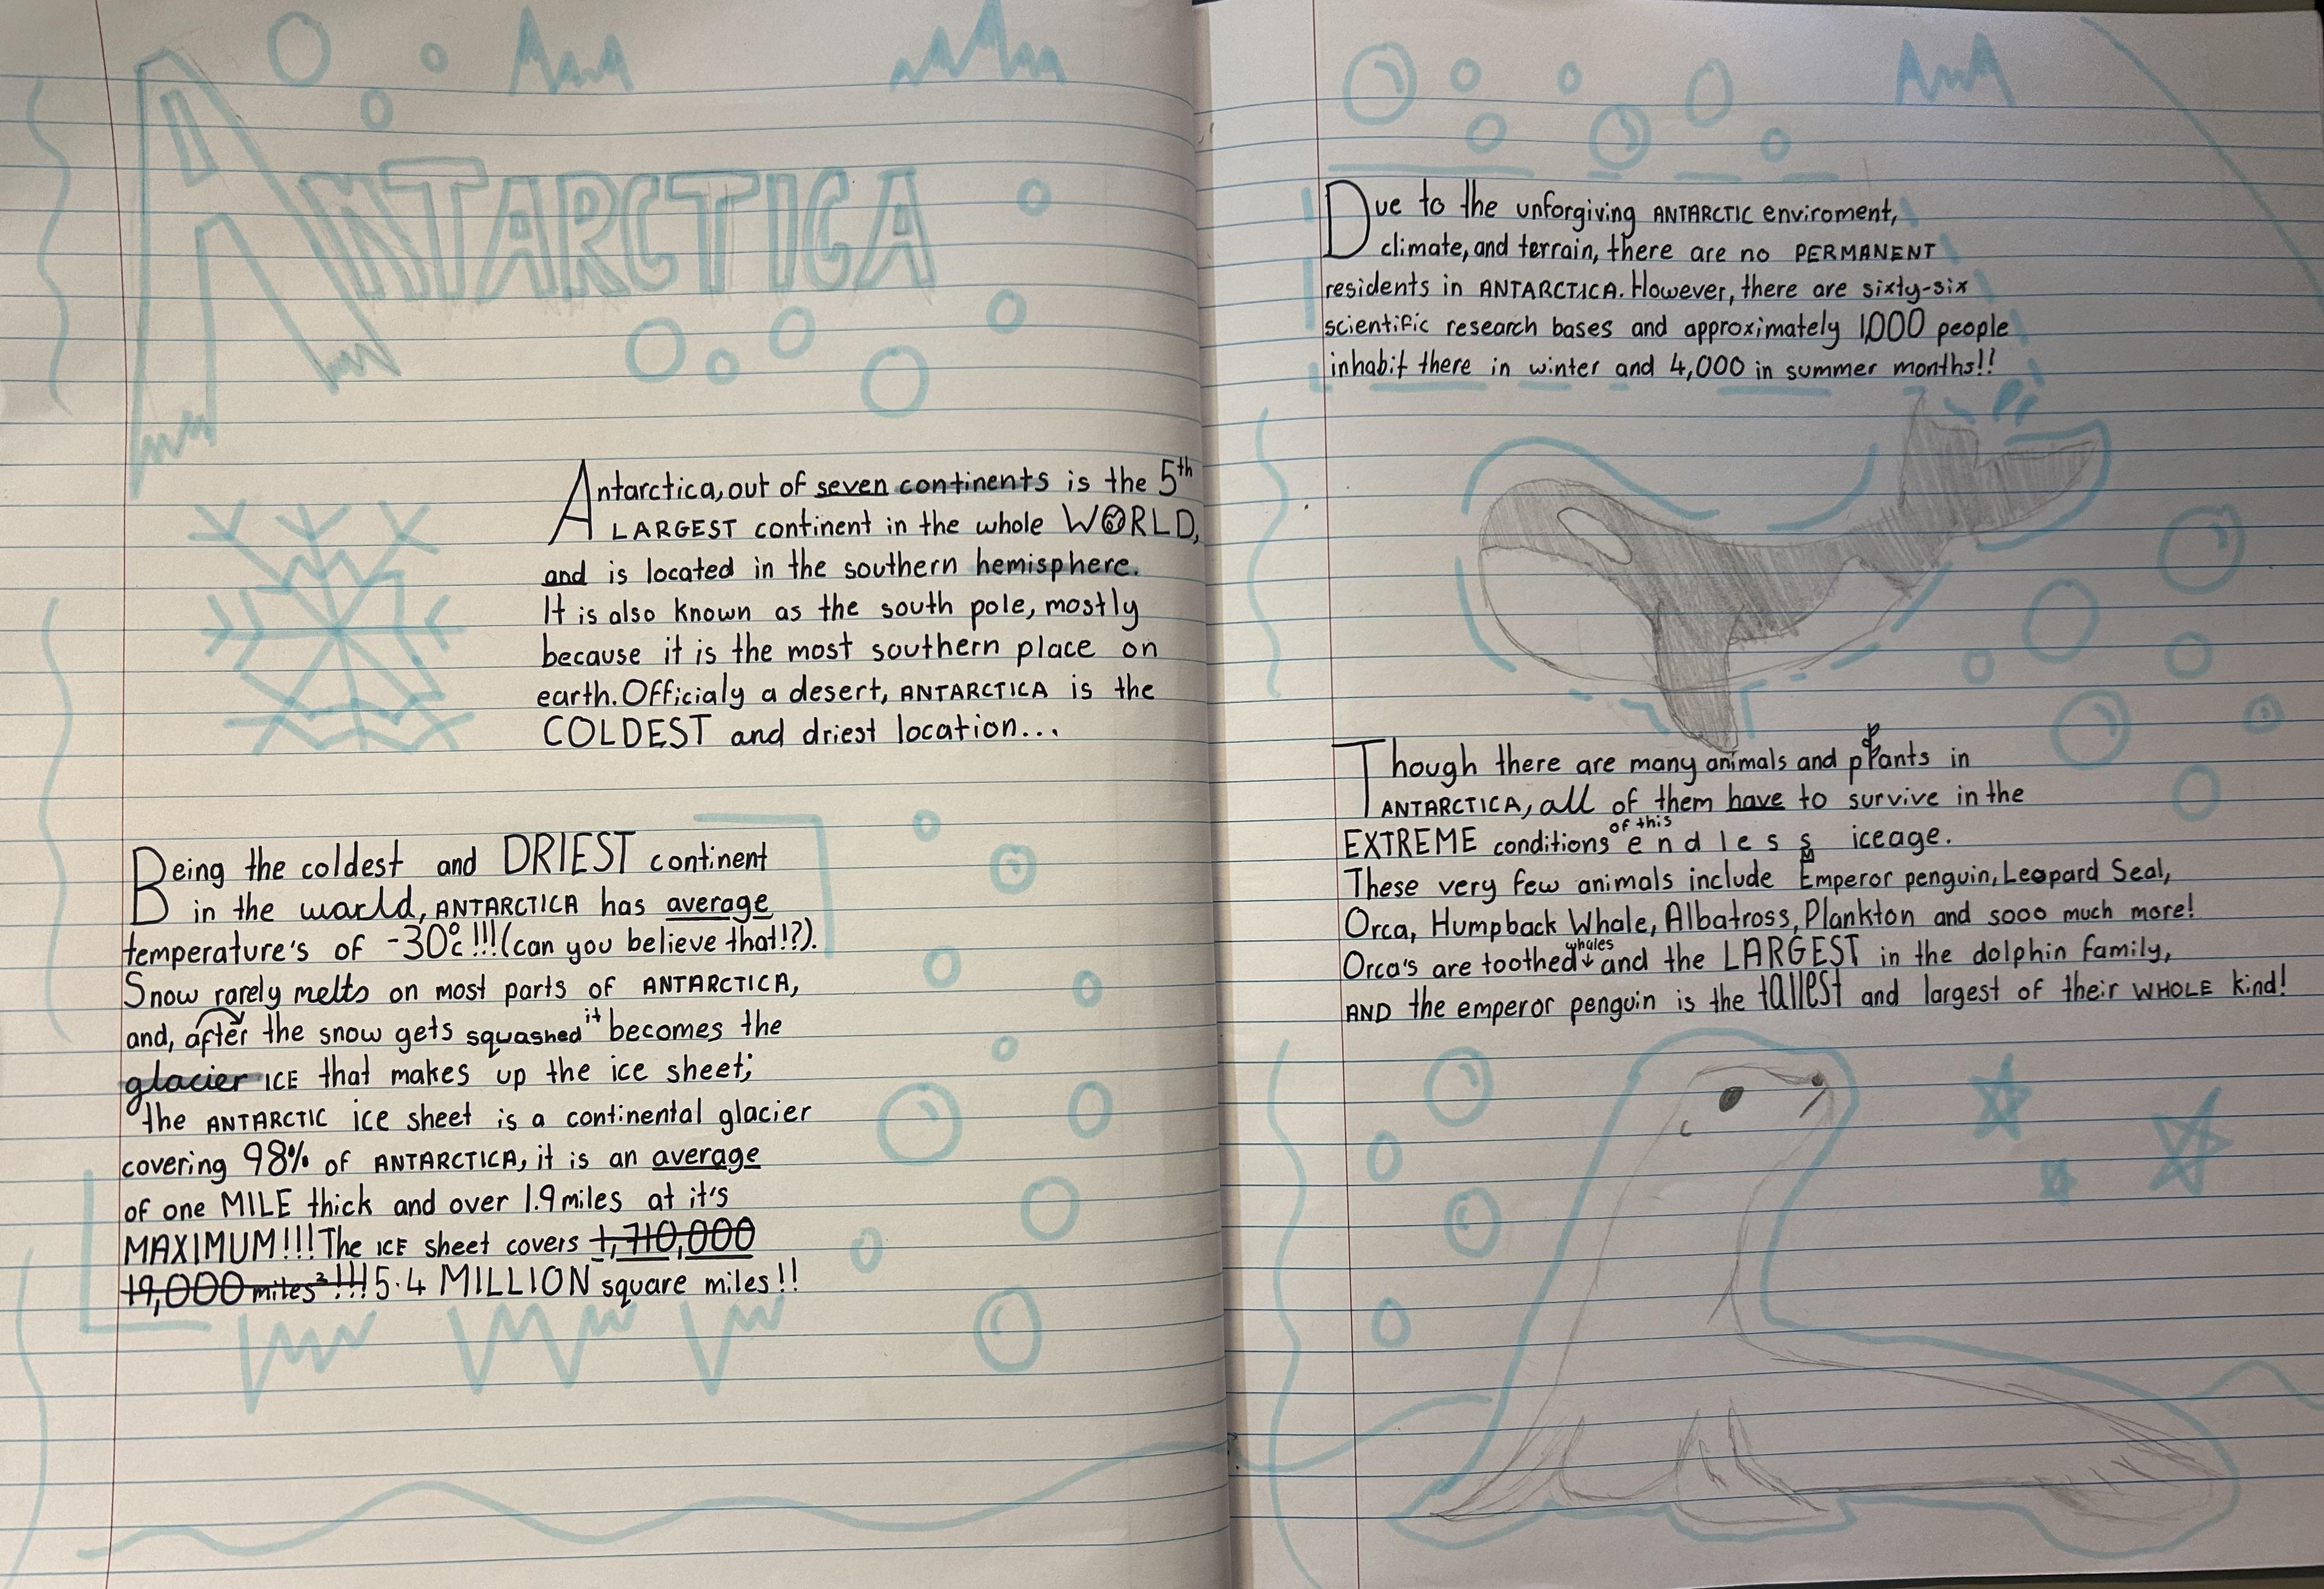 ANTARCTICA
Antarctica, out of seven continents is the 5th
LARGEST continent in the whole WORLD,
and is located in the southern hemisphere.
It is also known as the south pole, mostly
because it is the most southern place on
earth. Officialy a desert, ANTARCTICA is the
COLDEST and driest location...
Being the coldest and DRIEST continent
in the warld, ANTARCTICA has average
temperature's of -30°c!!! (can you believe that!?).
Snow rarely melts on most parts of ANTARCTICA,
and, after the snow gets squashed it becomes the
glacier ICE that makes up the ice sheet;
the ANTARCTIC ice sheet is a continental glacier
covering 98% of ANTARCTICA, it is an average
of one MILE thick and over 1.9 miles at it's
MAXIMUM!!! The ICE sheet covers 1,710,000
19,000 miles²!!! 5.4 MILLION square miles!!
Due to the unforgiving ANTARCTIC enviroment,
climate, and terrain, there are no PERMANENT
residents in ANTARCTICA. However, there are sixty-six
scientific research bases and approximately 1,000 people
inhabit there in winter and 4,000 in summer months!!
Though there are many animals and plants in
ANTARCTICA, all of them have to survive in the
EXTREME conditions of this endless iceage.
These very few animals include Emperor penguin, Leopard Seal,
Orca, Humpback Whale, Albatross, Plankton and sooo much more!
Orca's are toothed whales and the LARGEST in the dolphin family,
AND the emperor penguin is the tallest and largest of their WHOLE kind!